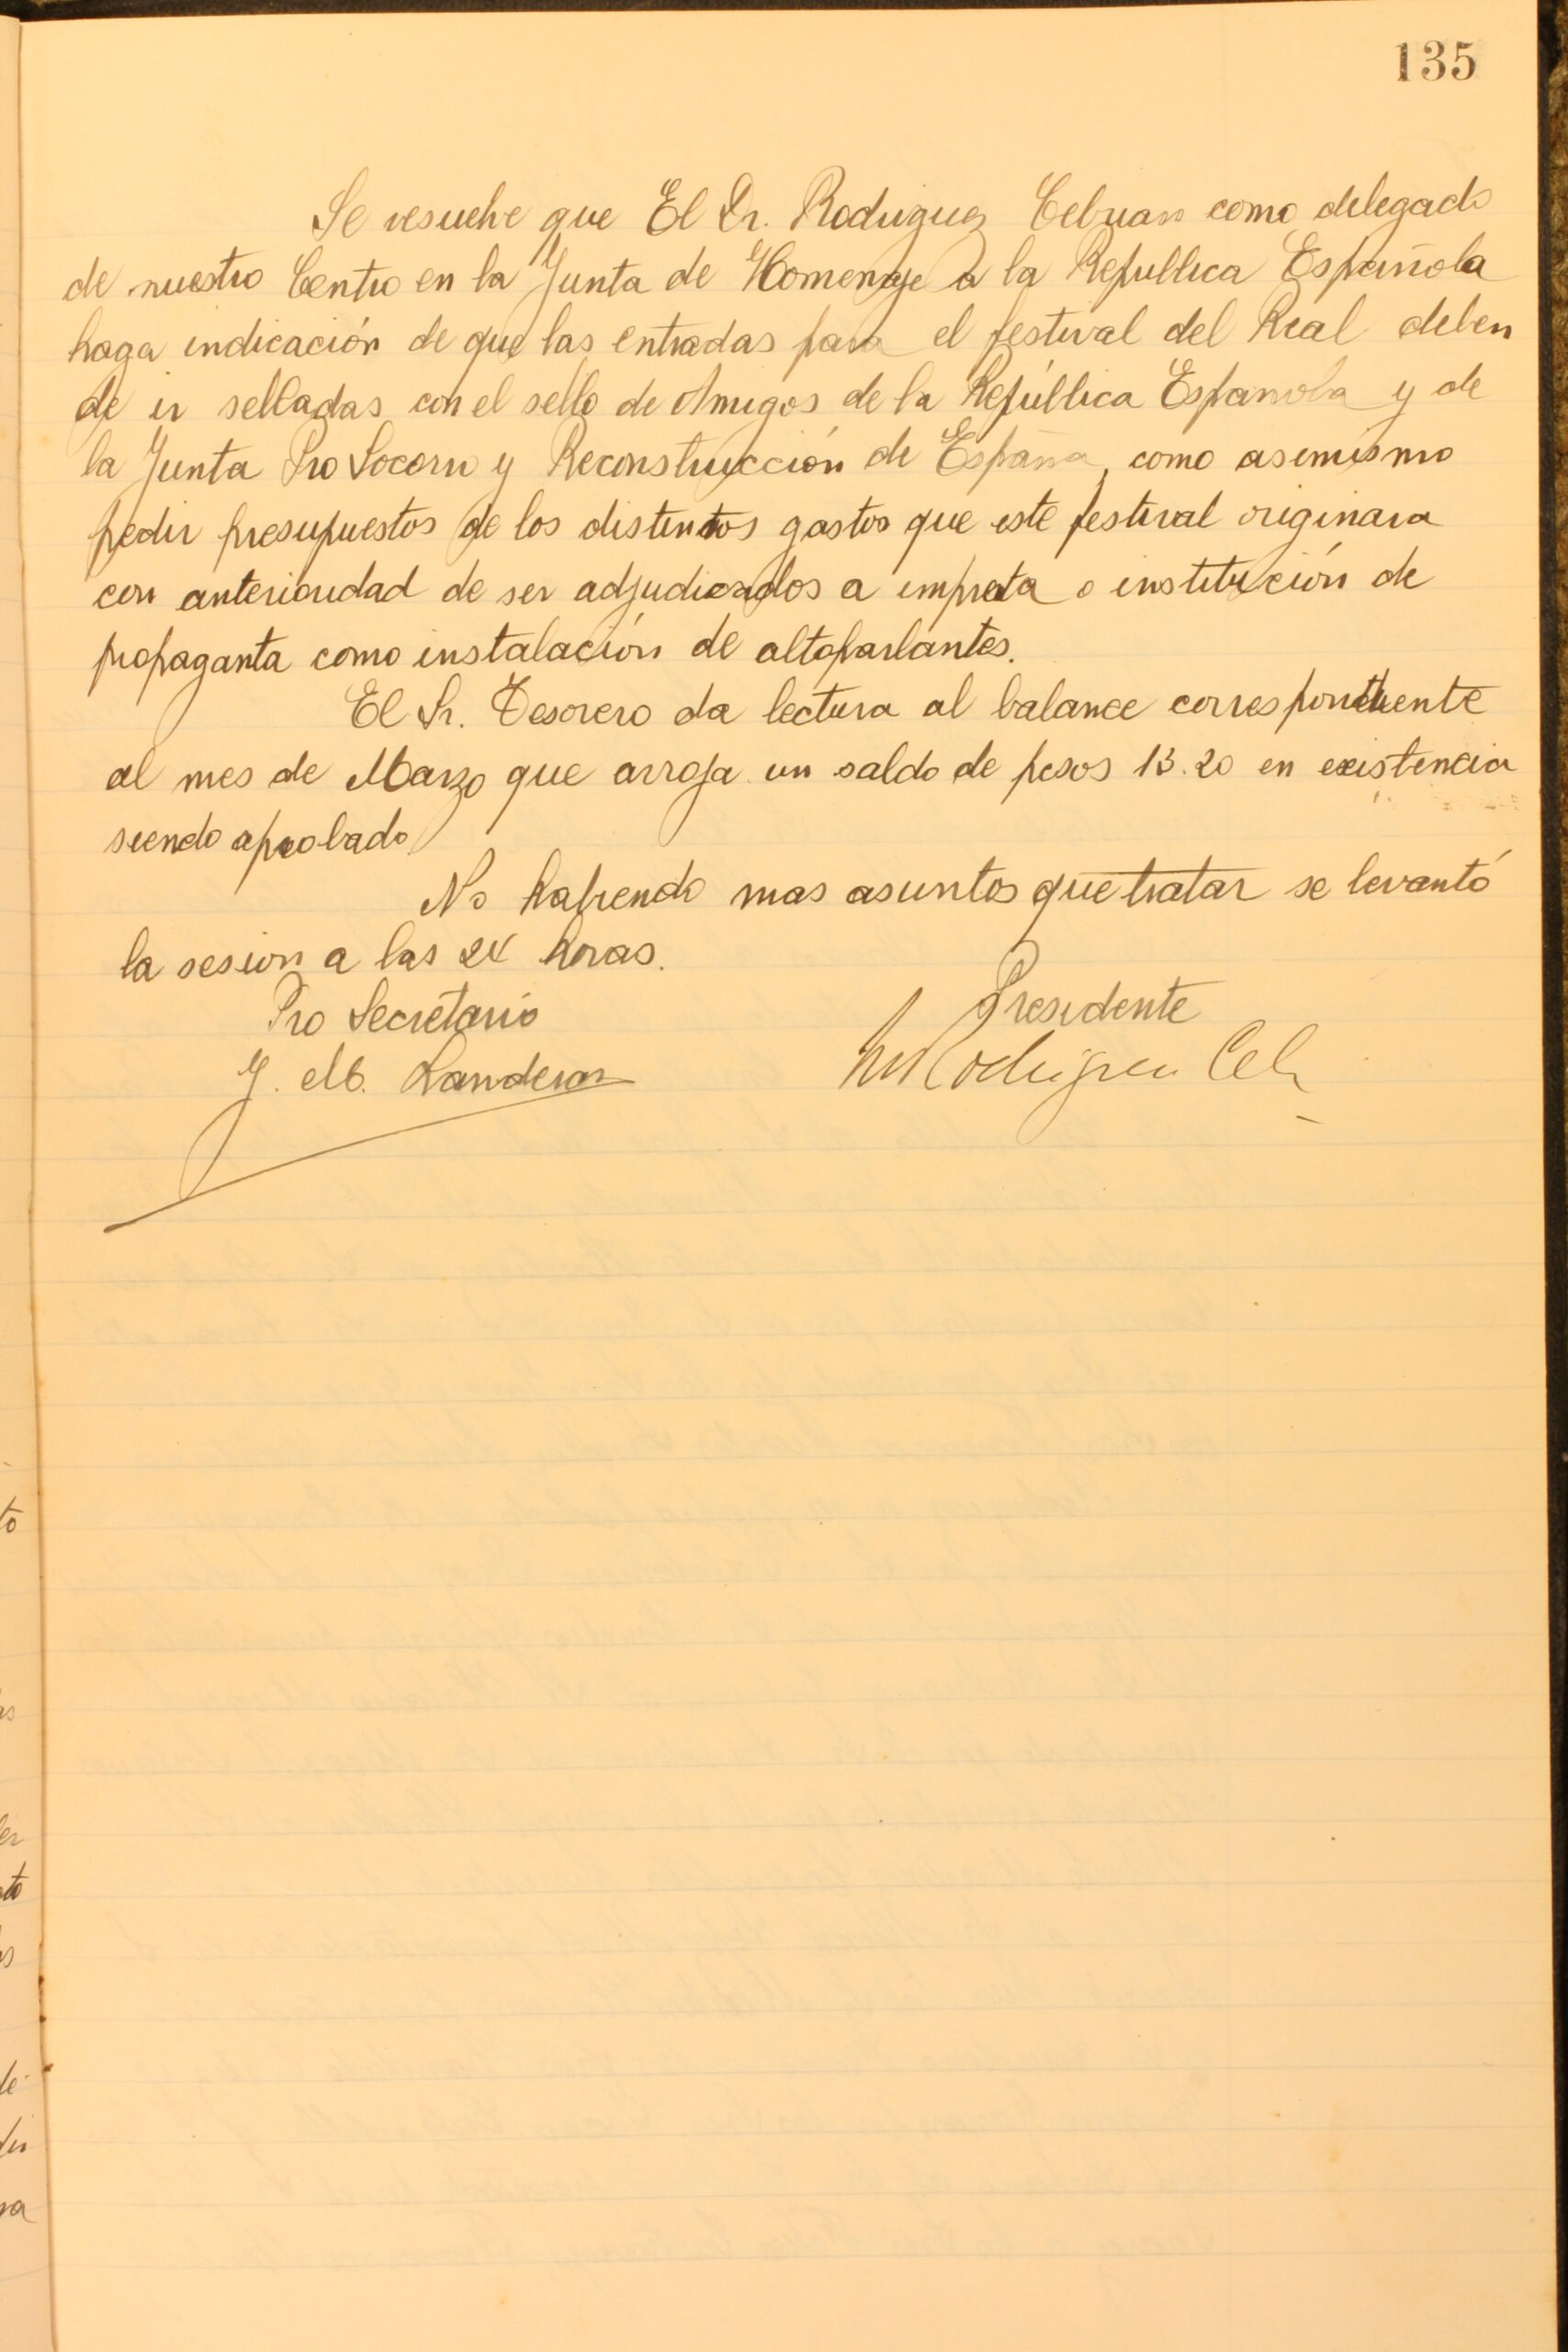 135
Se resuelve que El Dr. Rodriguez Cebrian como delegado
de nuestro Centro en la Junta de Homenaje a la Republica Española
haga indicación de que las entradas para el festival del Real deben
de ir selladas con el sello de Amigos de la República Española y de
la Junta Pro Socorro y Reconstrucción de España, como asimismo
pedir presupuestos de los distintos gastos que este festival originara
con anterioridad de ser adjudicados a impreta o institución de
propaganta como instalación de altoparlantes.
El Sr. Tesorero da lectura al balance correspondiente
al mes de Marzo que arroja un saldo de pesos 13.20 en existencia
siendo aprobado
No habiendo mas asuntos que tratar se levantó
la sesion a las 24 horas.
Pro Secretario
Presidente
J. M. Landeras
M Rodriguez Ceb
to
as
er
to
os
de
dir
na